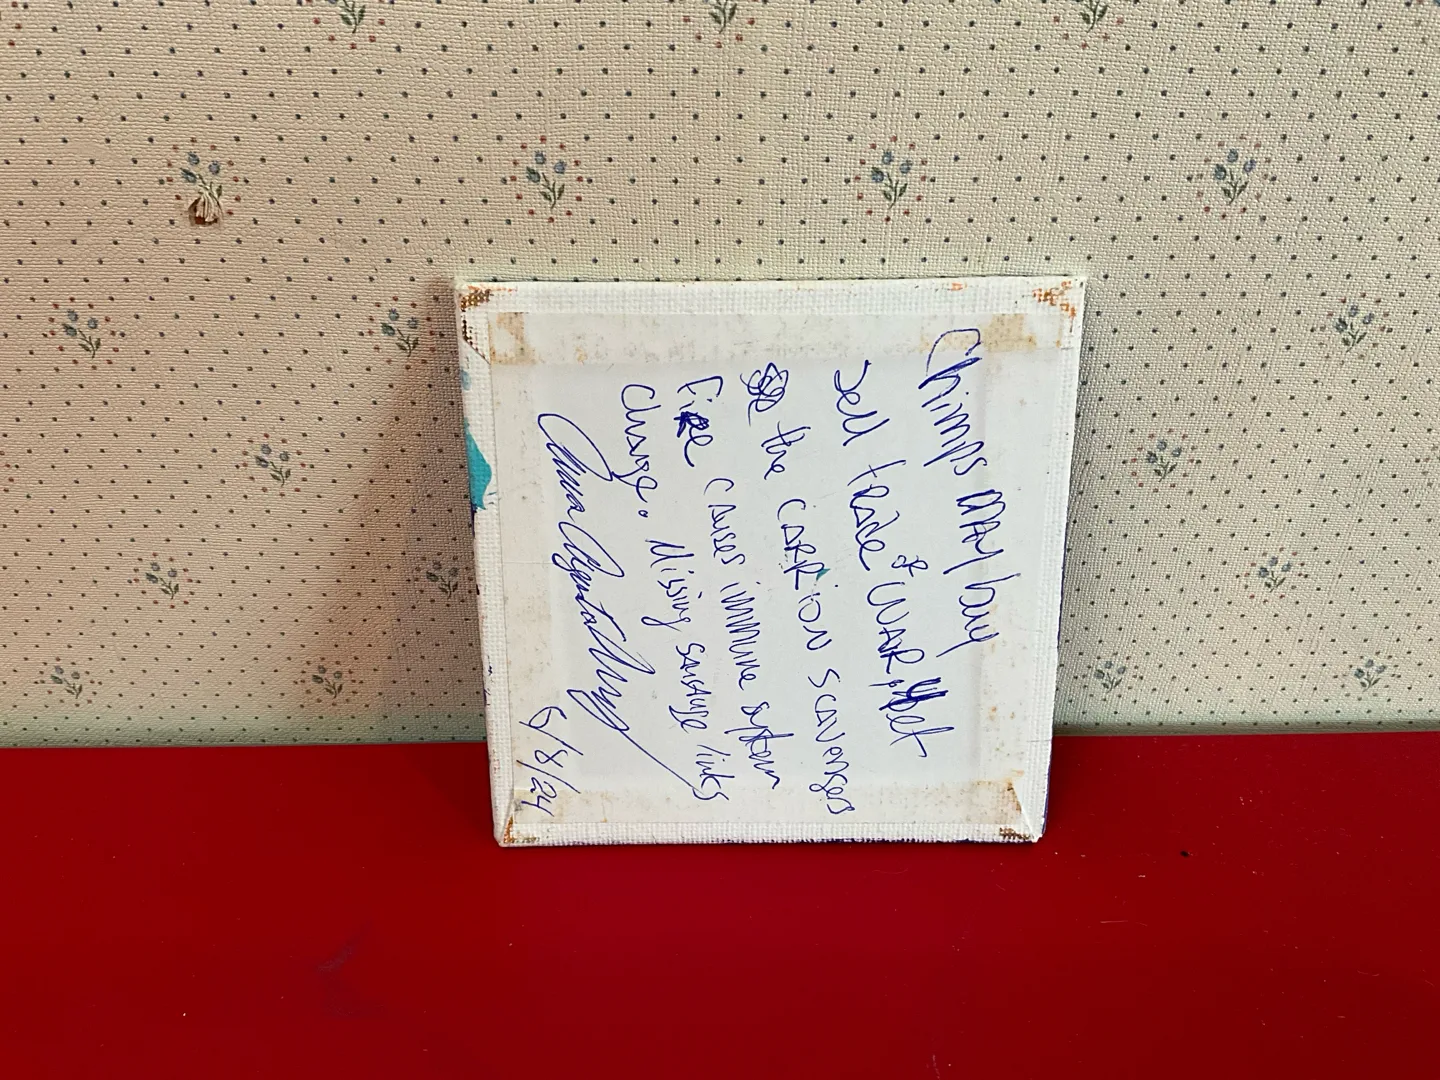 Chimps MAY buy
Sell trade & WAR, yet
the CARRION scavenges
Fire causes immune system
change. Missing sausage links
6/8/24